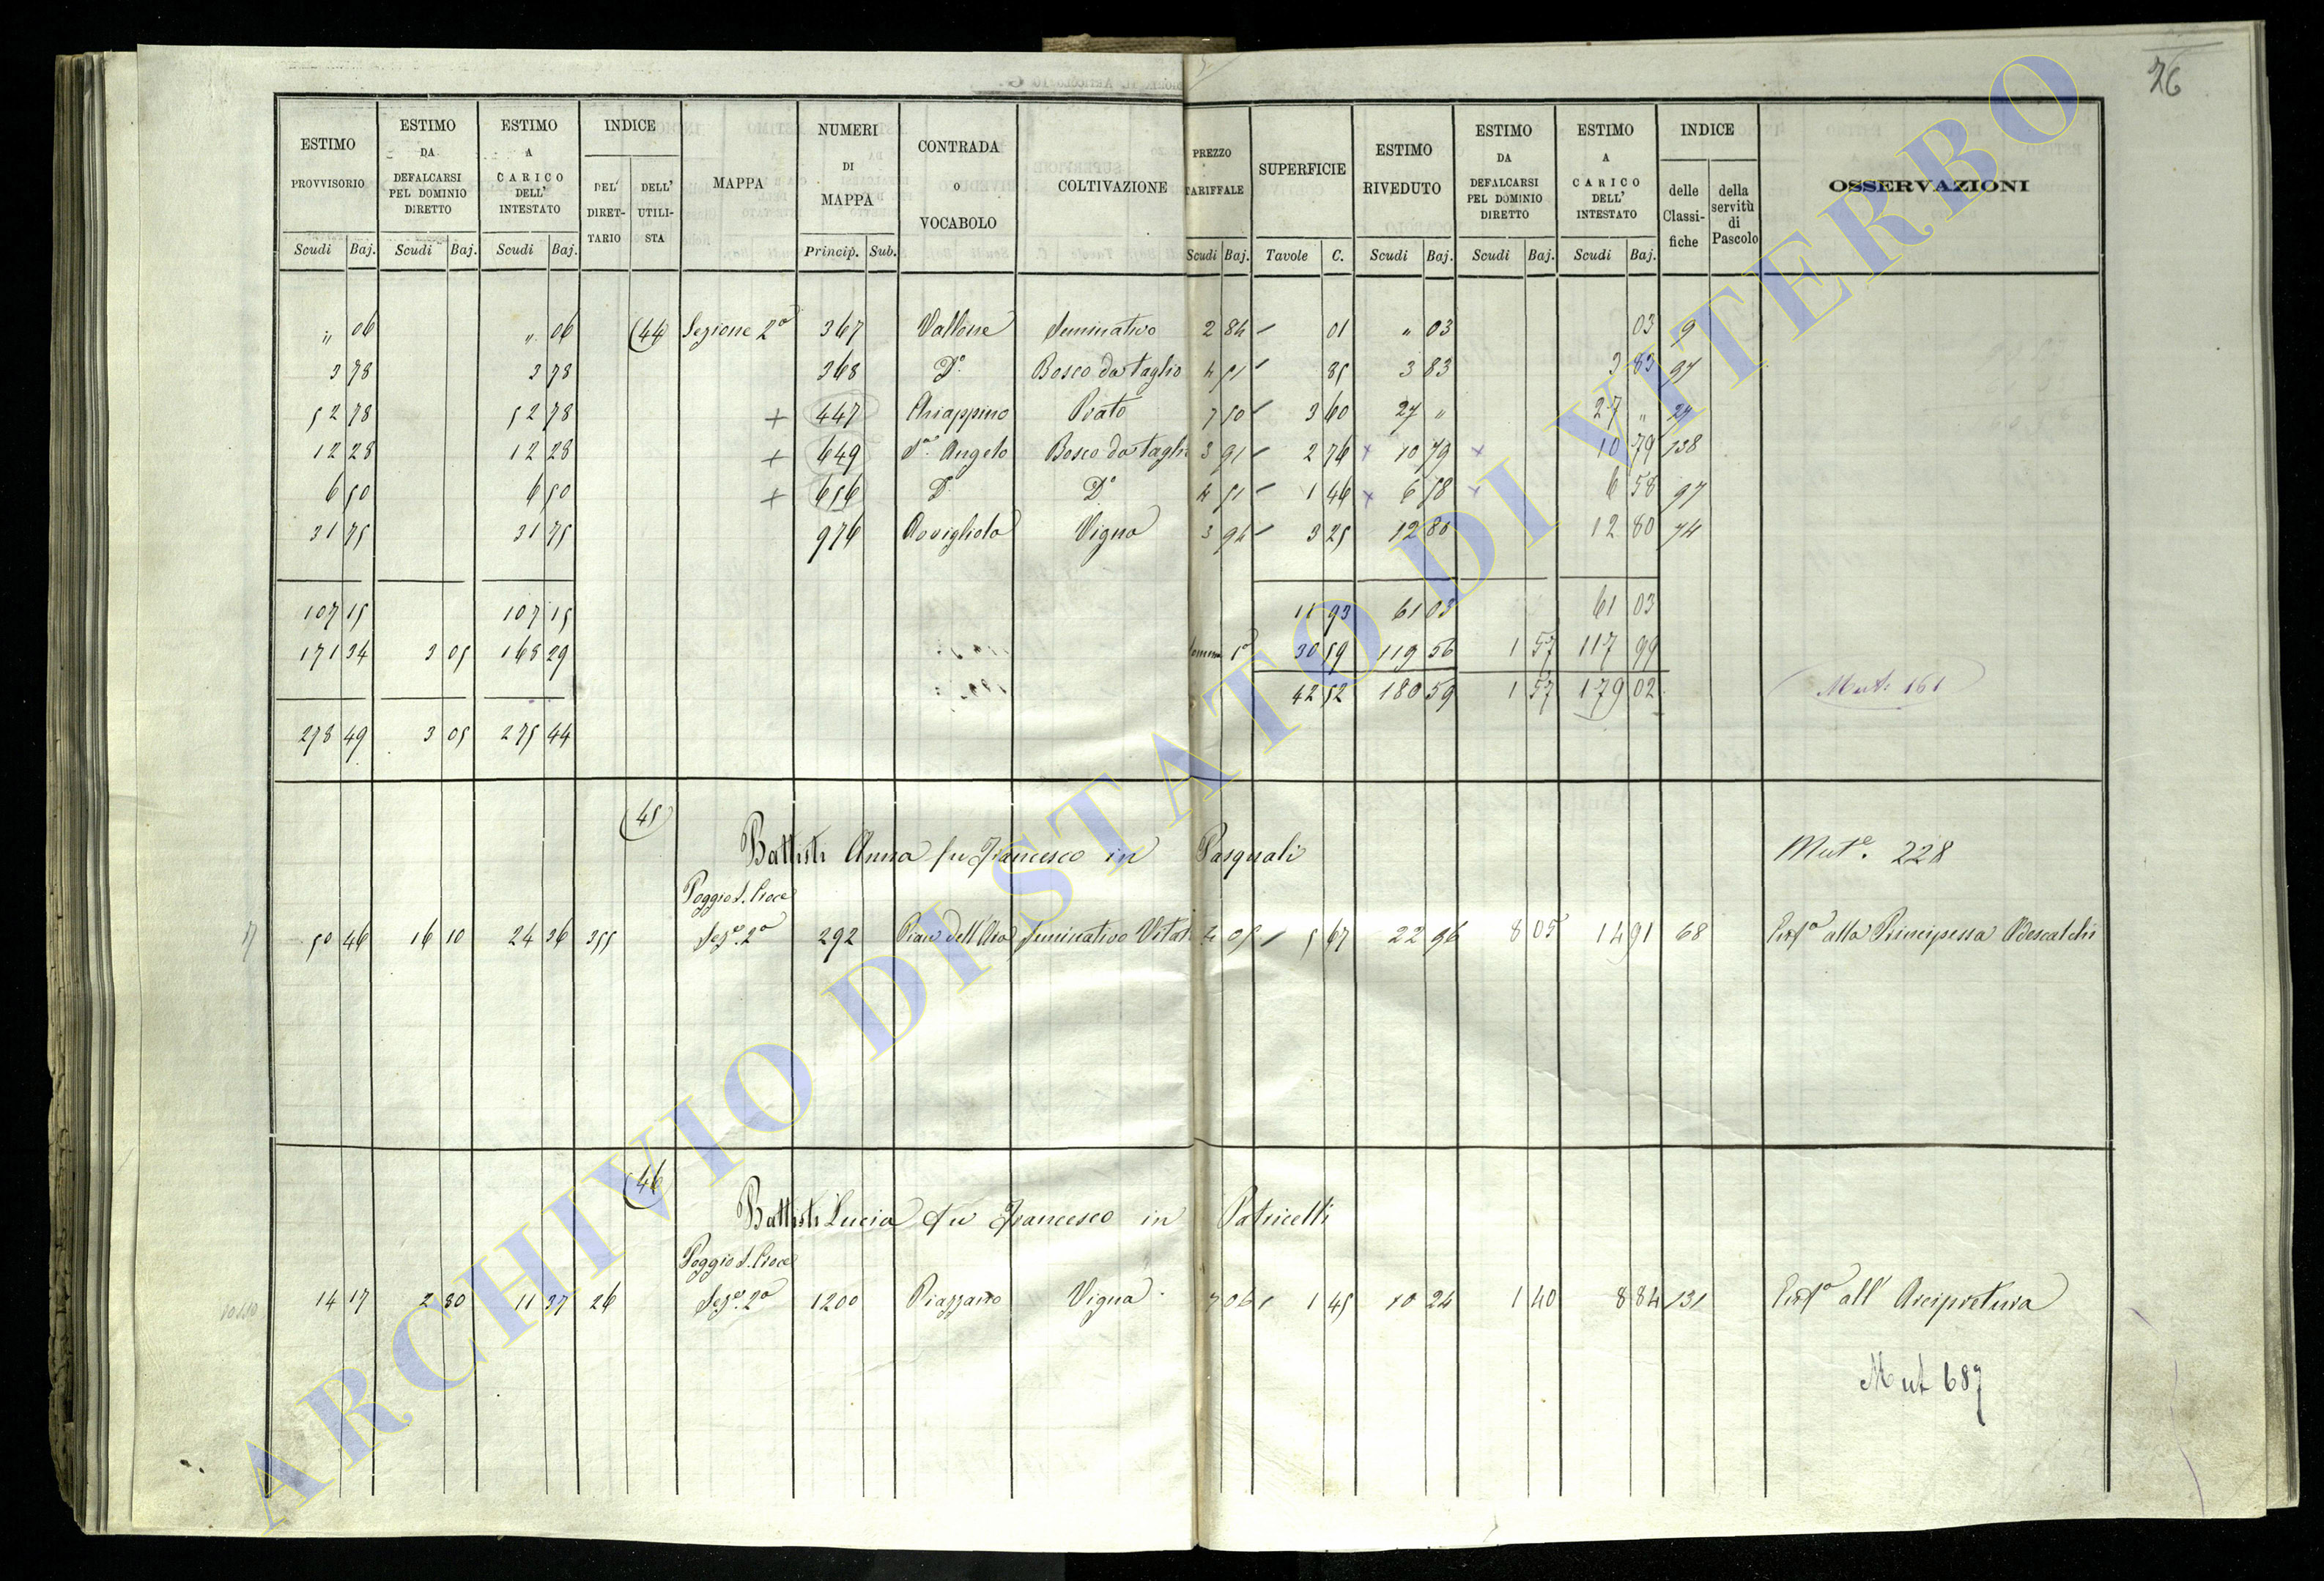 76
ESTIMO PROVVISORIO Scudi Baj.
ESTIMO DA DEFALCARSI PEL DOMINIO DIRETTO Scudi Baj.
ESTIMO A CARICO DELL' INTESTATO Scudi Baj.
INDICE DEL DIRETTARIO DELL' UTILISTA
MAPPA
NUMERI DI MAPPA Princip. Sub.
CONTRADA O VOCABOLO
COLTIVAZIONE
PREZZO TARIFFALE Scudi Baj.
SUPERFICIE Tavole C.
ESTIMO RIVEDUTO Scudi Baj.
ESTIMO DA DEFALCARSI PEL DOMINIO DIRETTO Scudi Baj.
ESTIMO A CARICO DELL' INTESTATO Scudi Baj.
INDICE delle Classifiche della servitù di Pascolo
OSSERVAZIONI
" 06 " 06 44 Sezione 2a 367 Vallone Seminativo 2 84 01 " 03 03 9
3 78 3 78 368 Do Bosco da taglio 4 51 85 3 83 3 83 97
52 78 52 78 + 447 Chiappino Prato 7 50 3 60 27 " 27 " 24
12 28 12 28 + 649 S. Angelo Bosco da tagli 3 91 2 76 × 10 79 × 10 79 138
6 50 6 50 + 656 Do Do 4 51 1 46 × 6 58 × 6 58 97
31 75 31 75 976 Vigna 3 94 3 25 12 80 12 80 74
107 15 107 15 11 93 61 03 61 03
171 34 3 05 168 29 Somma 1a 30 59 119 56 1 57 117 99
42 52 180 59 1 57 179 02 Mut. 161
278 49 3 05 275 44
45
Battisti Anna fu Francesco in Pasquali Mute. 228
Poggio S. Croce
17 50 46 16 10 24 36 355 Sez. 2a 292 Pian dell'Ara Seminativo Vitat 4 05 5 67 22 96 8 05 14 91 68 alla Principessa Odescalchi
46
Battisti Lucia fu Francesco in Patricelli
Poggio S. Croce
14 17 2 80 11 37 26 Sez. 2a 1200 Piazzano Vigna 7 06 1 45 10 24 1 40 8 84 131 all' Arcipretura
Mut 687
ARCHIVIO DI STATO DI VITERBO